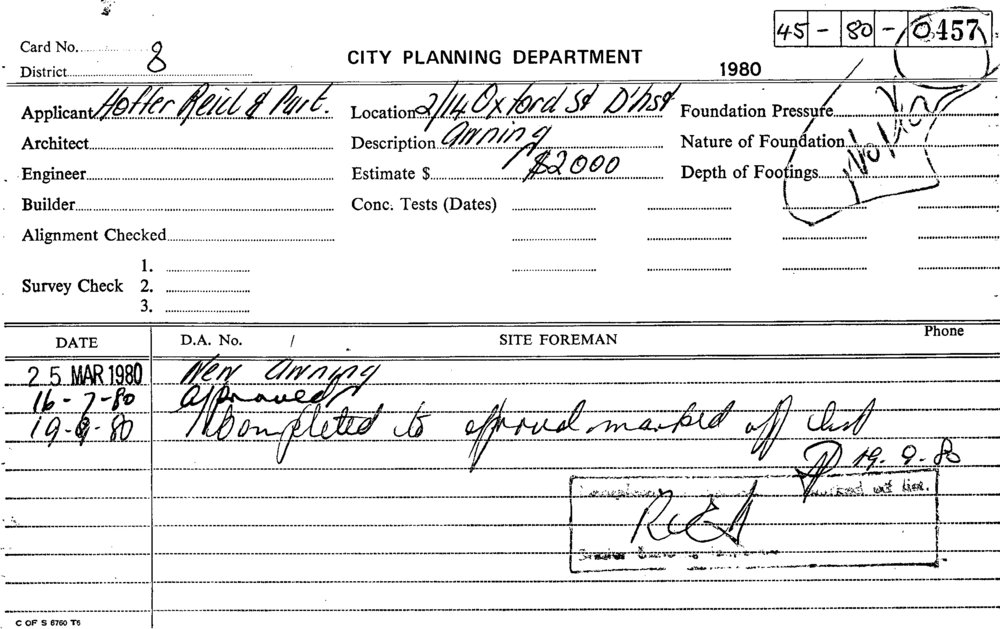 45 - 80 - 0457
Card No. 8
CITY PLANNING DEPARTMENT
District
1980
Applicant Hoffer Reid & Part. Location 2/14 Oxford St D'hst Foundation Pressure
Architect Description Awning Nature of Foundation
Engineer Estimate $ $2000 Depth of Footings
Builder Conc. Tests (Dates)
Alignment Checked
1.
Survey Check 2.
3.
DATE D.A. No. / SITE FOREMAN Phone
25 MAR 1980 New Awning
16-7-80 approved
19-9-80 Completed to approval marked off list
19.9.80
C OF S 6760 T6